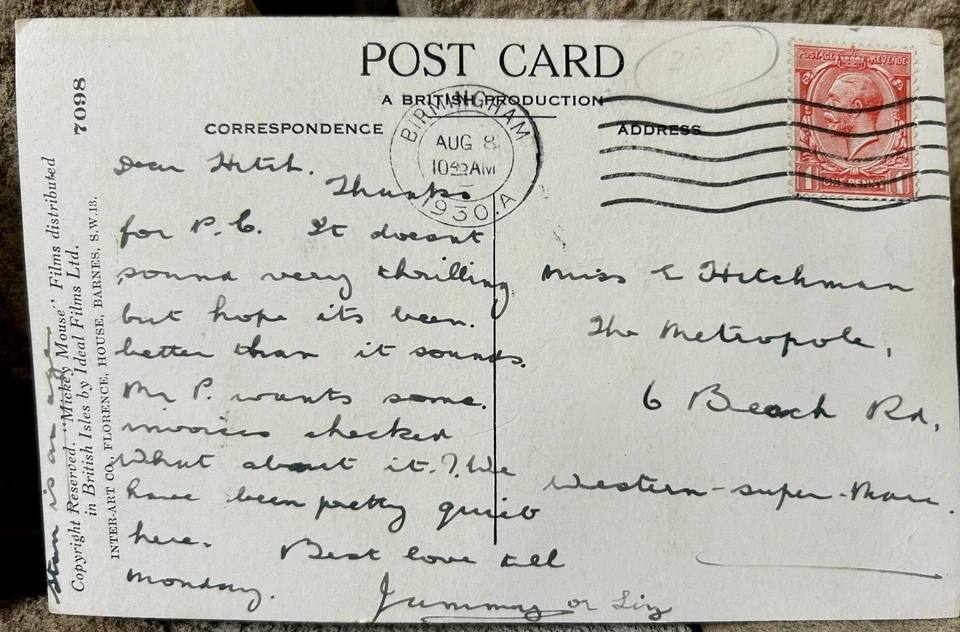 POST CARD
A BRITISH PRODUCTION
CORRESPONDENCE
ADDRESS
BIRMINGHAM
AUG 8
1045AM
1930.A
POSTAGE REVENUE
1 ONE PENNY 1
7098
Copyright Reserved. "Mickey Mouse" Films distributed
in British Isles by Ideal Films Ltd.
INTER-ART CO., FLORENCE, HOUSE, BARNES, S.W.13.
Dear Hitch.
Thanks
for P.C. It doesnt
sound very thrilling
but hope its been.
better than it sounds.
Mr P. wants some.
invoices checked
what about it.? We
have been pretty quiet
here. Best love till
Monday.
Jummy or Liz
Stan is an
Miss E Hitchman
The Metropole,
6 Beach Rd,
Western-super-Mare.